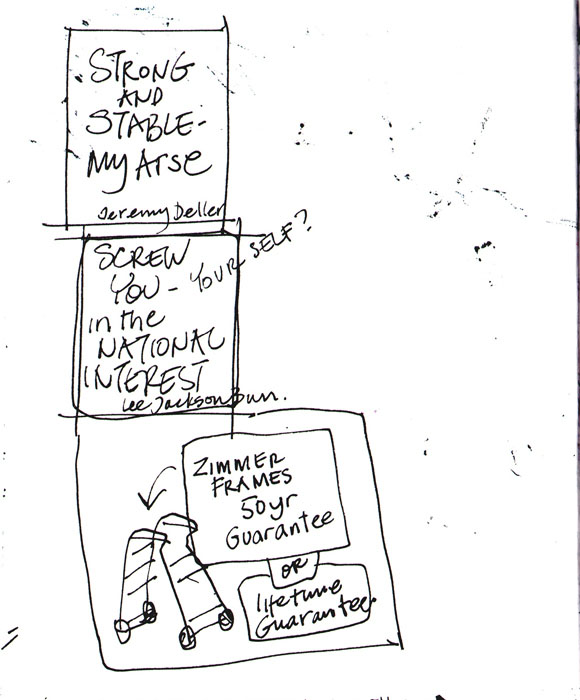 STRONG
AND
STABLE-
My Arse
Jeremy Deller
SCREW
YOU - YOUR SELF?
in the
NATIONAL
INTEREST
Lee Jackson Bun.
ZIMMER
FRAMES
50yr
Guarantee
OR
lifetime
Guarantee.